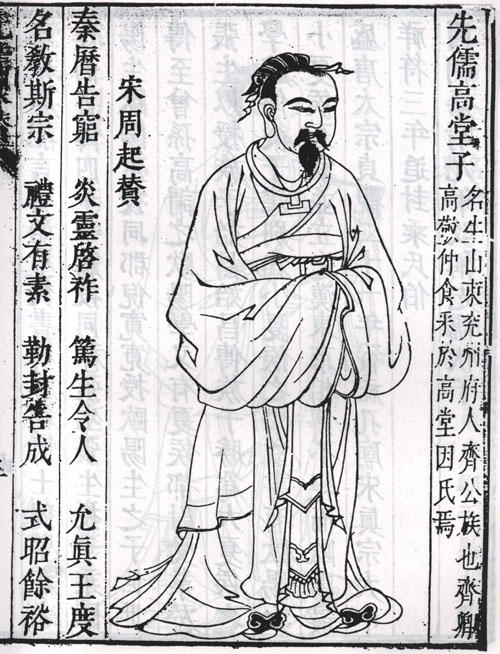 先儒高堂子
名生山東兖州府人齊公族也齊卿
高敬仲食采於高堂因氏焉
宋周起贊
秦曆告窮 炎靈啓祚 篤生令人 允眞王度
名敎斯宗 禮文有素 勒封告成 式昭餘裕